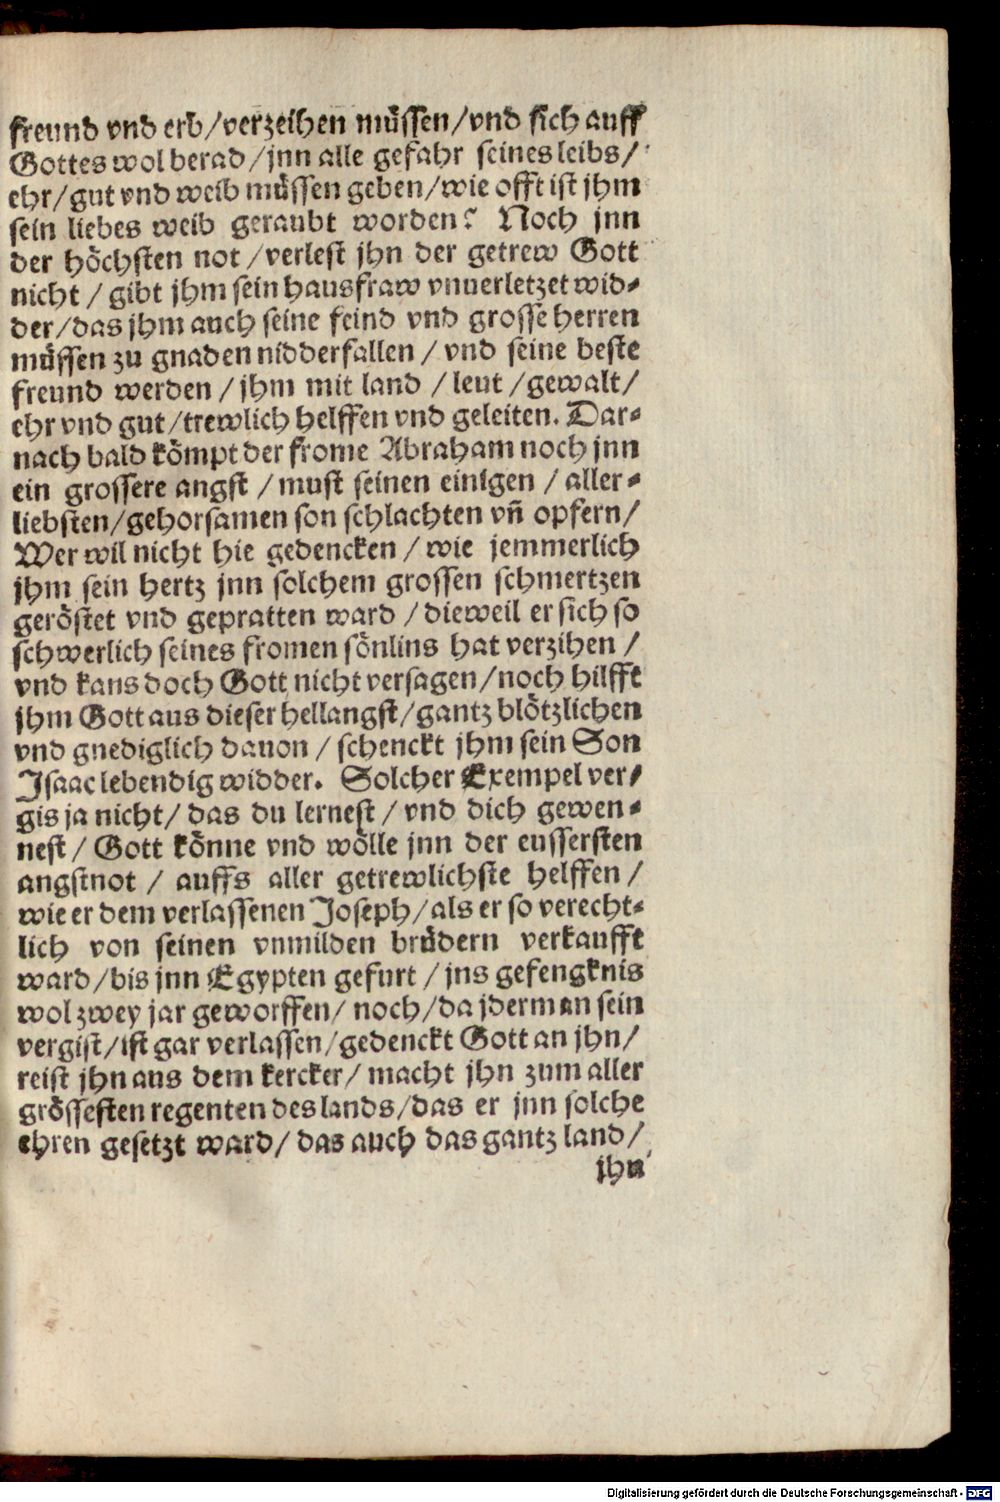 freund vnd erb/verzeihen müssen/vnd sich auff
Gottes wol berad/jnn alle gefahr seines leibs/
ehr/gut vnd weib müssen geben/wie offt ist jhm
sein liebes weib geraubt worden? Noch jnn
der höchsten not/verlest jhn der getrew Gott
nicht/gibt jhm sein hausfraw vnuerletzet wid-
der/das jhm auch seine feind vnd grosse herren
müssen zu gnaden nidderfallen/vnd seine beste
freund werden/jhm mit land/leut/gewalt/
ehr vnd gut/trewlich helffen vnd geleiten. Dar-
nach bald kömpt der frome Abraham noch jnn
ein grossere angst/must seinen einigen/aller-
liebsten/gehorsamen son schlachten vñ opfern/
Wer wil nicht hie gedencken/wie jemmerlich
jhm sein hertz jnn solchem grossen schmertzen
geröstet vnd gepratten ward/dieweil er sich so
schwerlich seines fromen sönlins hat verzihen/
vnd kans doch Gott nicht versagen/noch hilfft
jhm Gott aus dieser hellangst/gantz blötzlichen
vnd gnediglich dauon/schenckt jhm sein Son
Isaac lebendig widder. Solcher Exempel ver-
gis ja nicht/das du lernest/vnd dich gewen-
nest/Gott könne vnd wölle jnn der eussersten
angstnot/auffs aller getrewlichste helffen/
wie er dem verlassenen Joseph/als er so verecht-
lich von seinen vnmilden brüdern verkaufft
ward/bis jnn Egypten gefurt/jns gefengknis
wol zwey jar geworffen/noch/da jderman sein
vergist/ist gar verlassen/gedenckt Gott an jhn/
reist jhn aus dem kercker/macht jhn zum aller
grössesten regenten des lands/das er jnn solche
ehren gesetzt ward/das auch das gantz land/
jhn
Digitalisierung gefördert durch die Deutsche Forschungsgemeinschaft - DFG